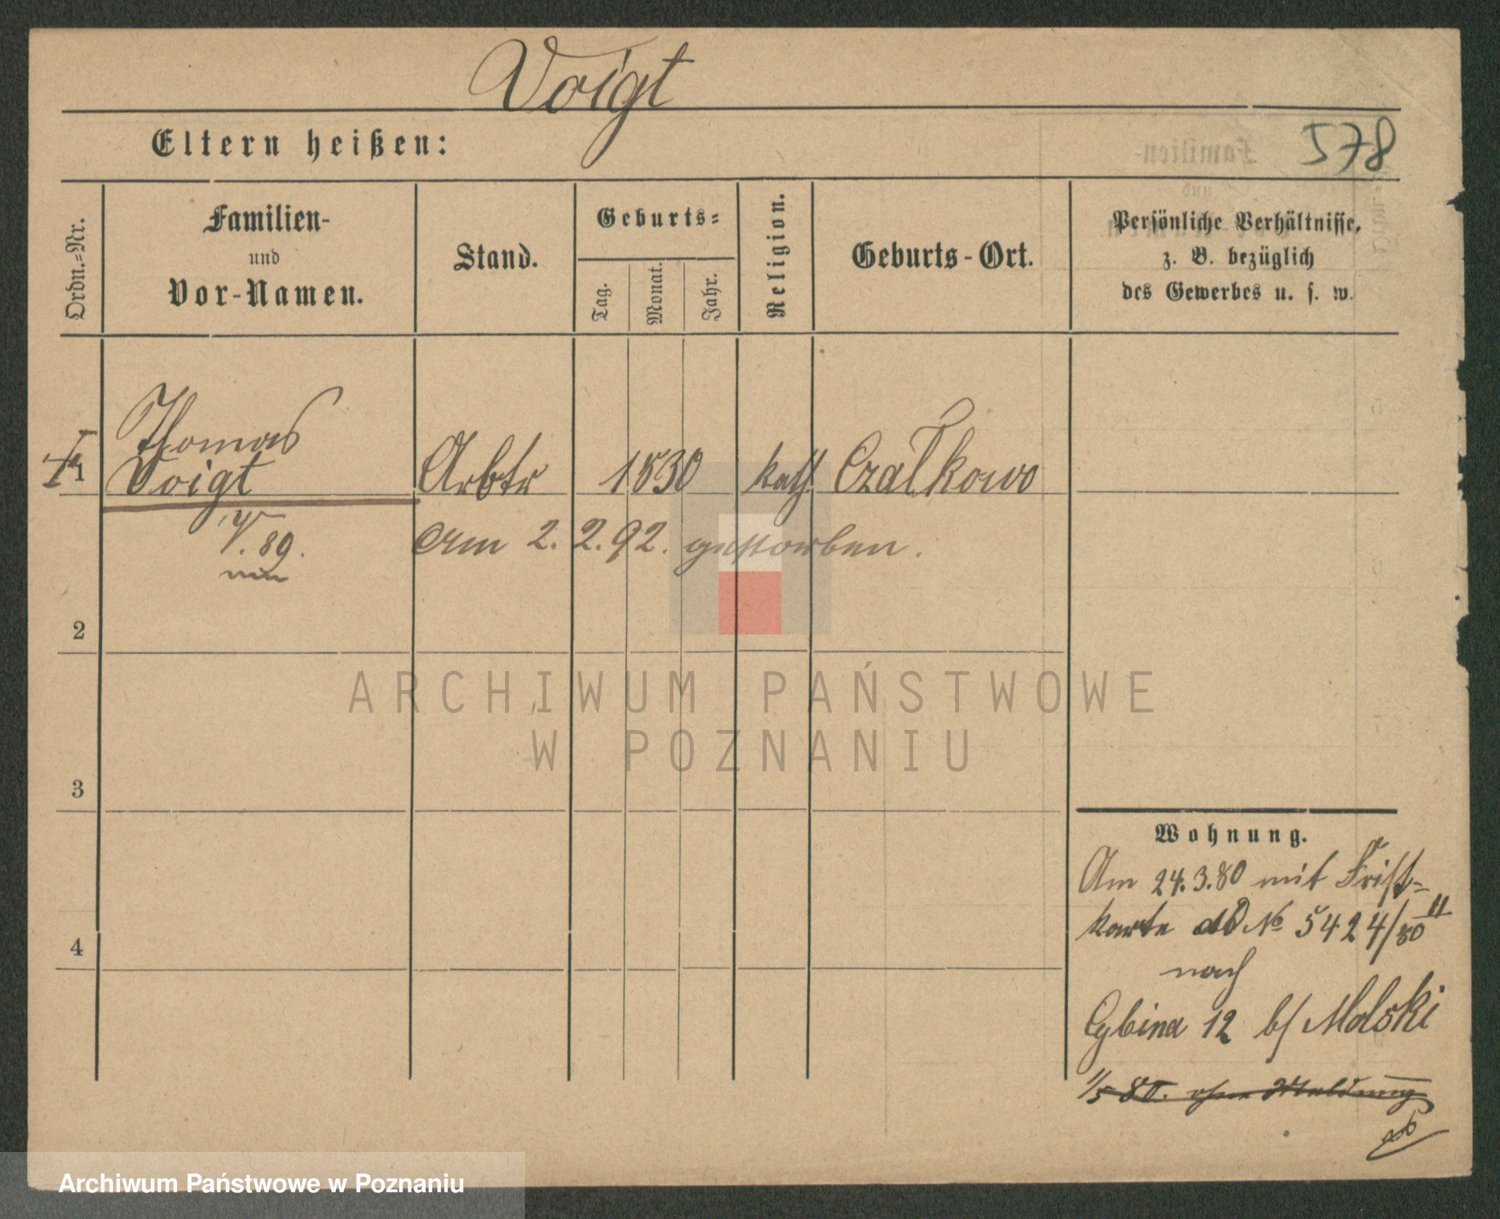 Voigt
Eltern heißen:
578
Ordn.-Nr.
Familien-
und
Vor-Namen.
Stand.
Geburts-
Tag.
Monat.
Jahr.
Religion.
Geburts-Ort.
Persönliche Verhältnisse,
z. B. bezüglich
des Gewerbes u. s. w.
Thomas
1 Voigt Arbtr 1830 kath Czalkowo
V. 89. Am 2. 2. 92. gestorben.
2
ARCHIWUM PAŃSTWOWE
W POZNANIU
3
Wohnung.
Am 24.3.80 mit Frist-
karte No 5424/80 II
4
nach
Cybina 12 b/ Molski
1/5 80. ohne Meldung
Archiwum Państwowe w Poznaniu